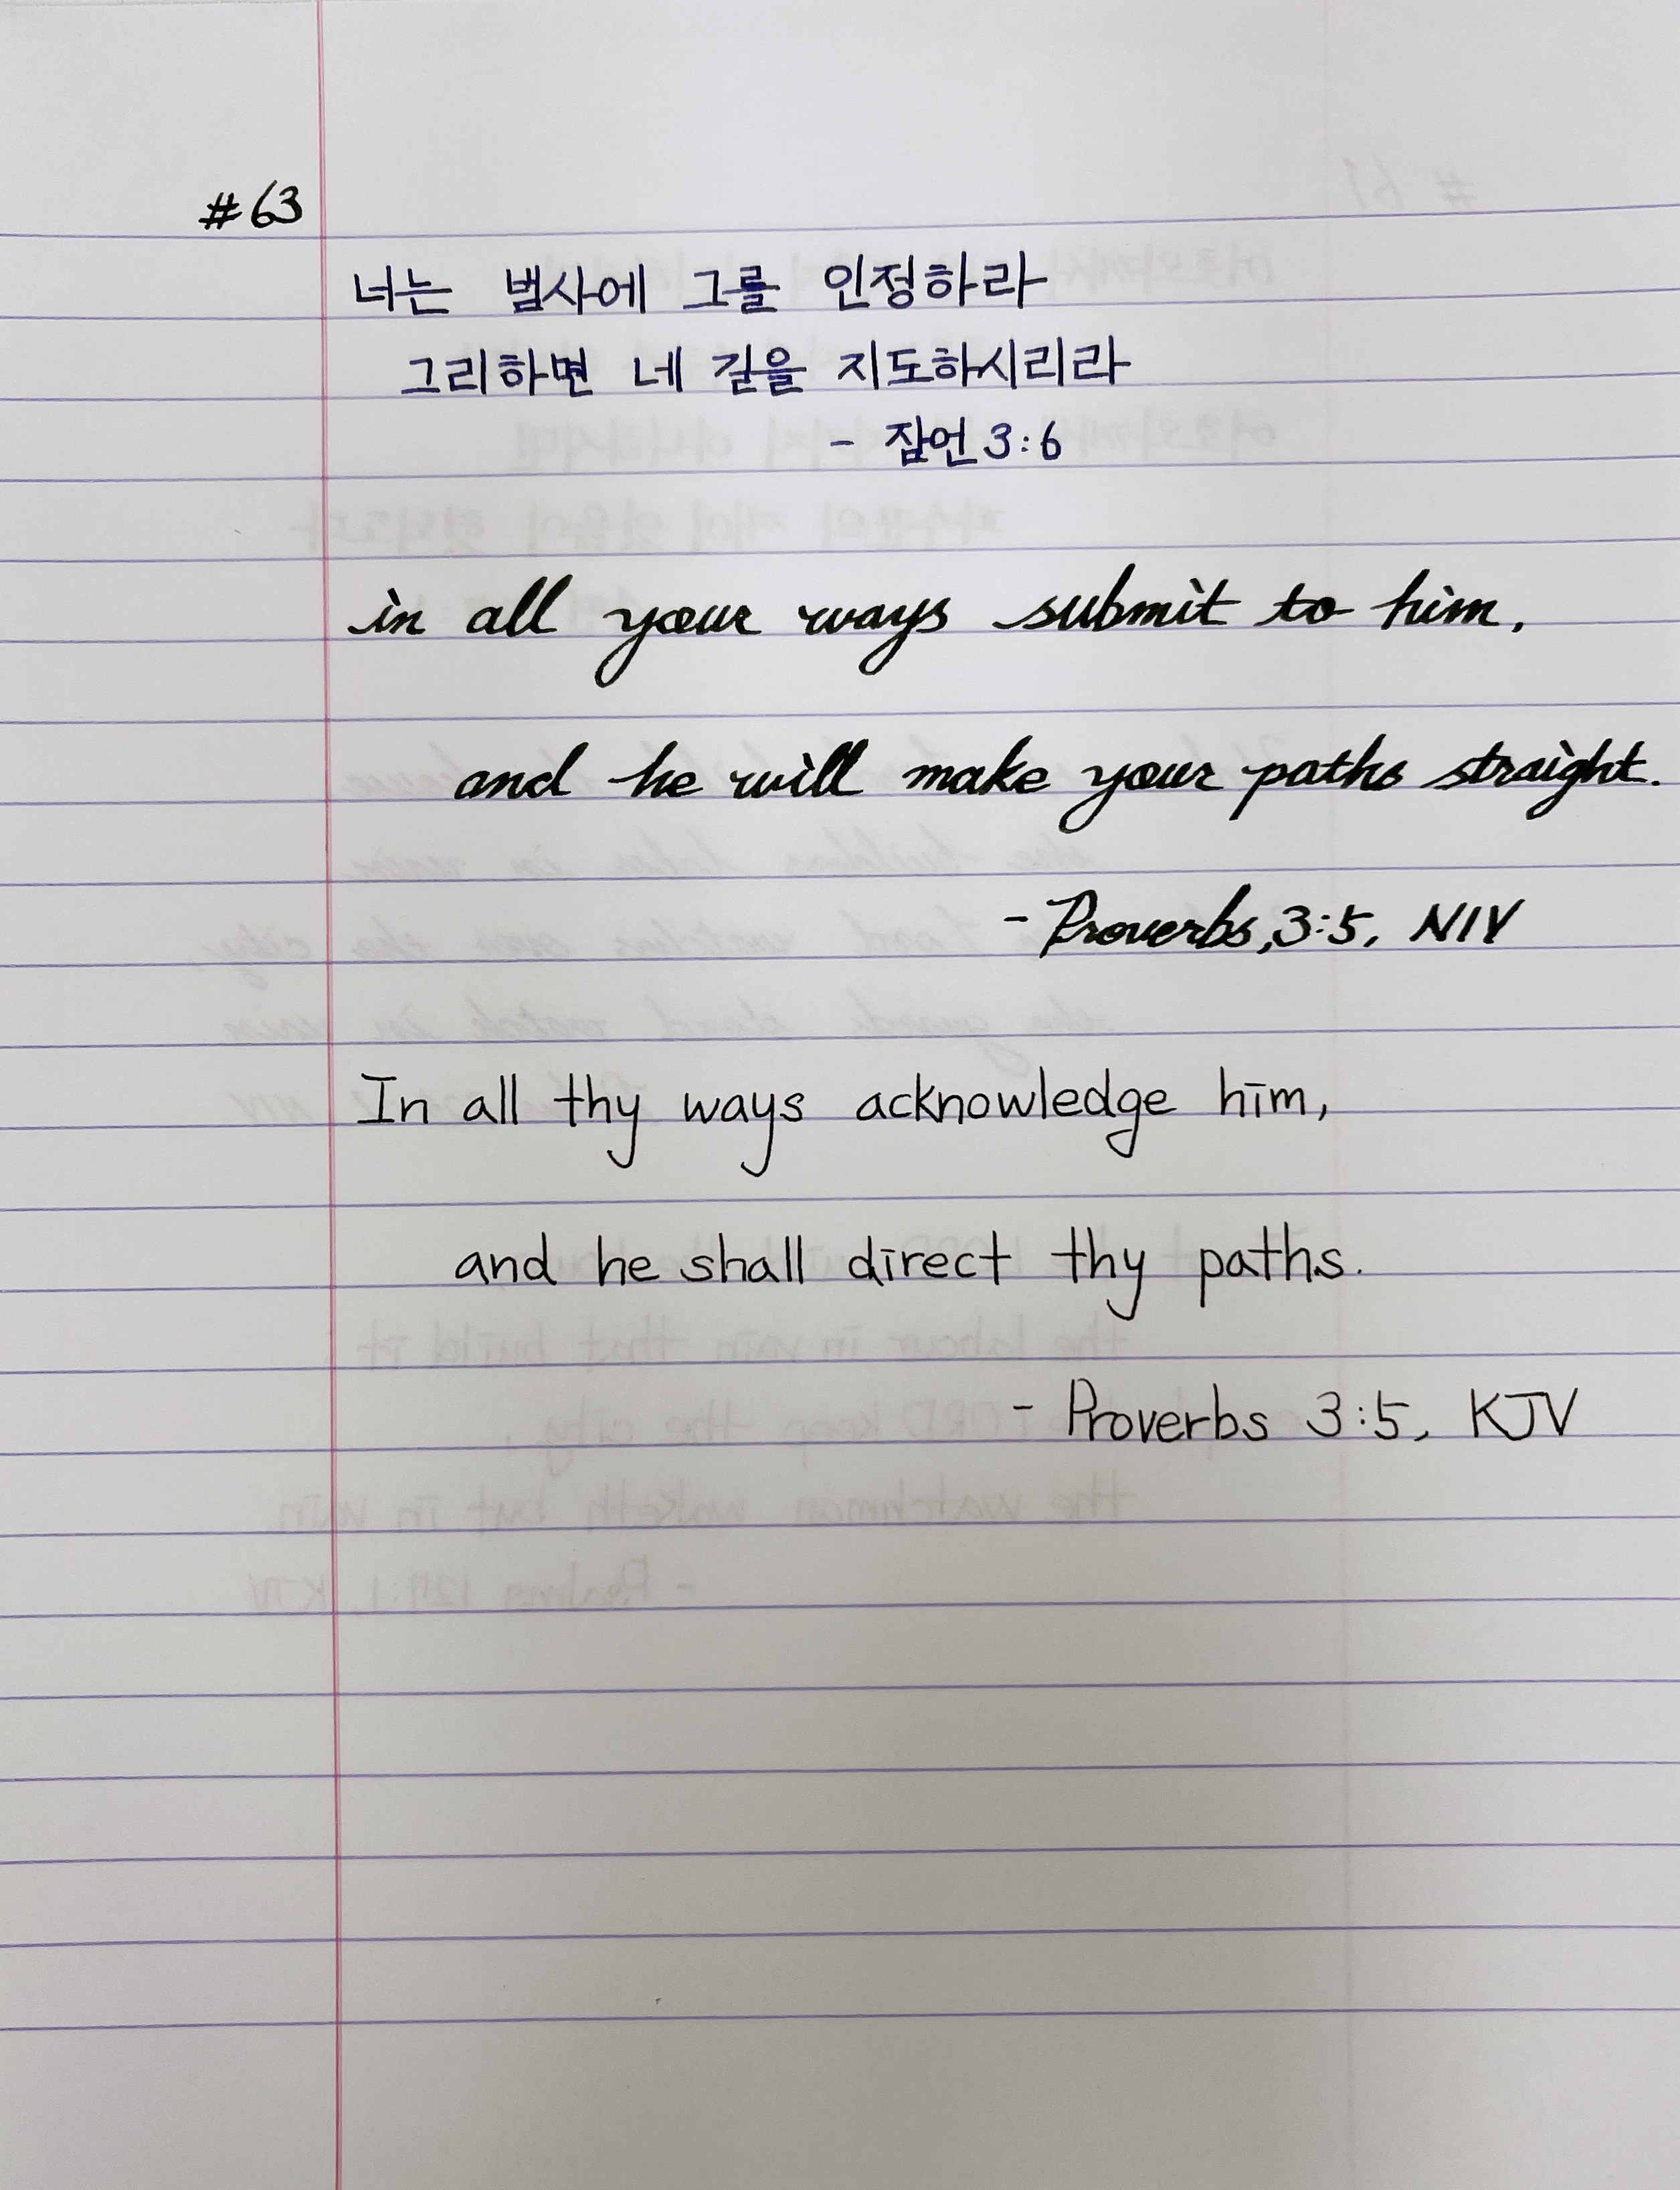 #63
너는 범사에 그를 인정하라
그리하면 네 길을 지도하시리라
- 잠언 3:6
in all your ways submit to him,
and he will make your paths straight.
- Proverbs, 3:5, NIV
In all thy ways acknowledge him,
and he shall direct thy paths.
- Proverbs 3:5, KJV